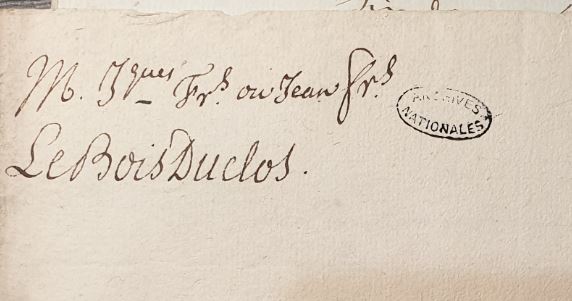 M. Jques Frs. ou Jean frs.
LeBois Duclos.
ARCHIVES NATIONALES